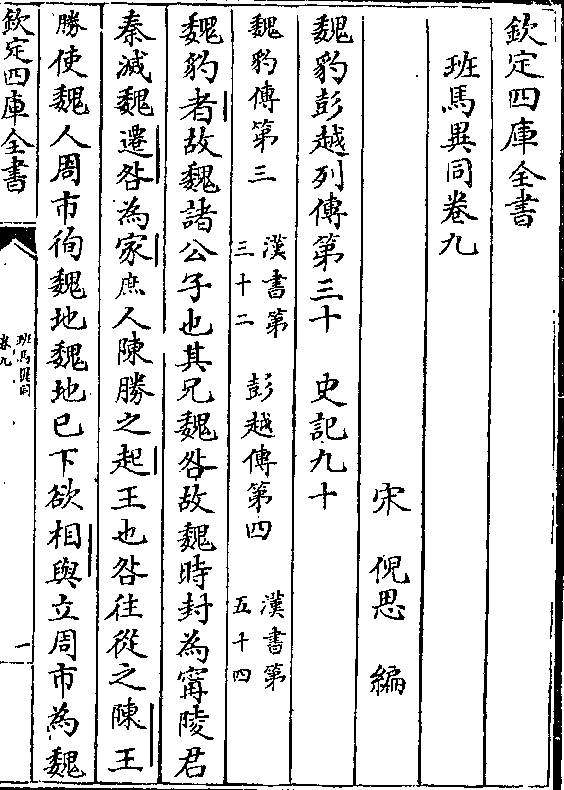 欽定四庫全書
班馬異同卷九
宋 倪思 編
魏豹彭越列傳第三十 史記九十
魏豹傳第三 漢書第三十二 彭越傳第四 漢書第五十四
魏豹者故魏諸公子也其兄魏咎故魏時封為甯陵君
秦滅魏遷咎為家庶人陳勝之起王也咎往從之陳王
勝使魏人周市徇魏地魏地已下欲相與立周市為魏
欽定四庫全書
班馬異同
卷九
一